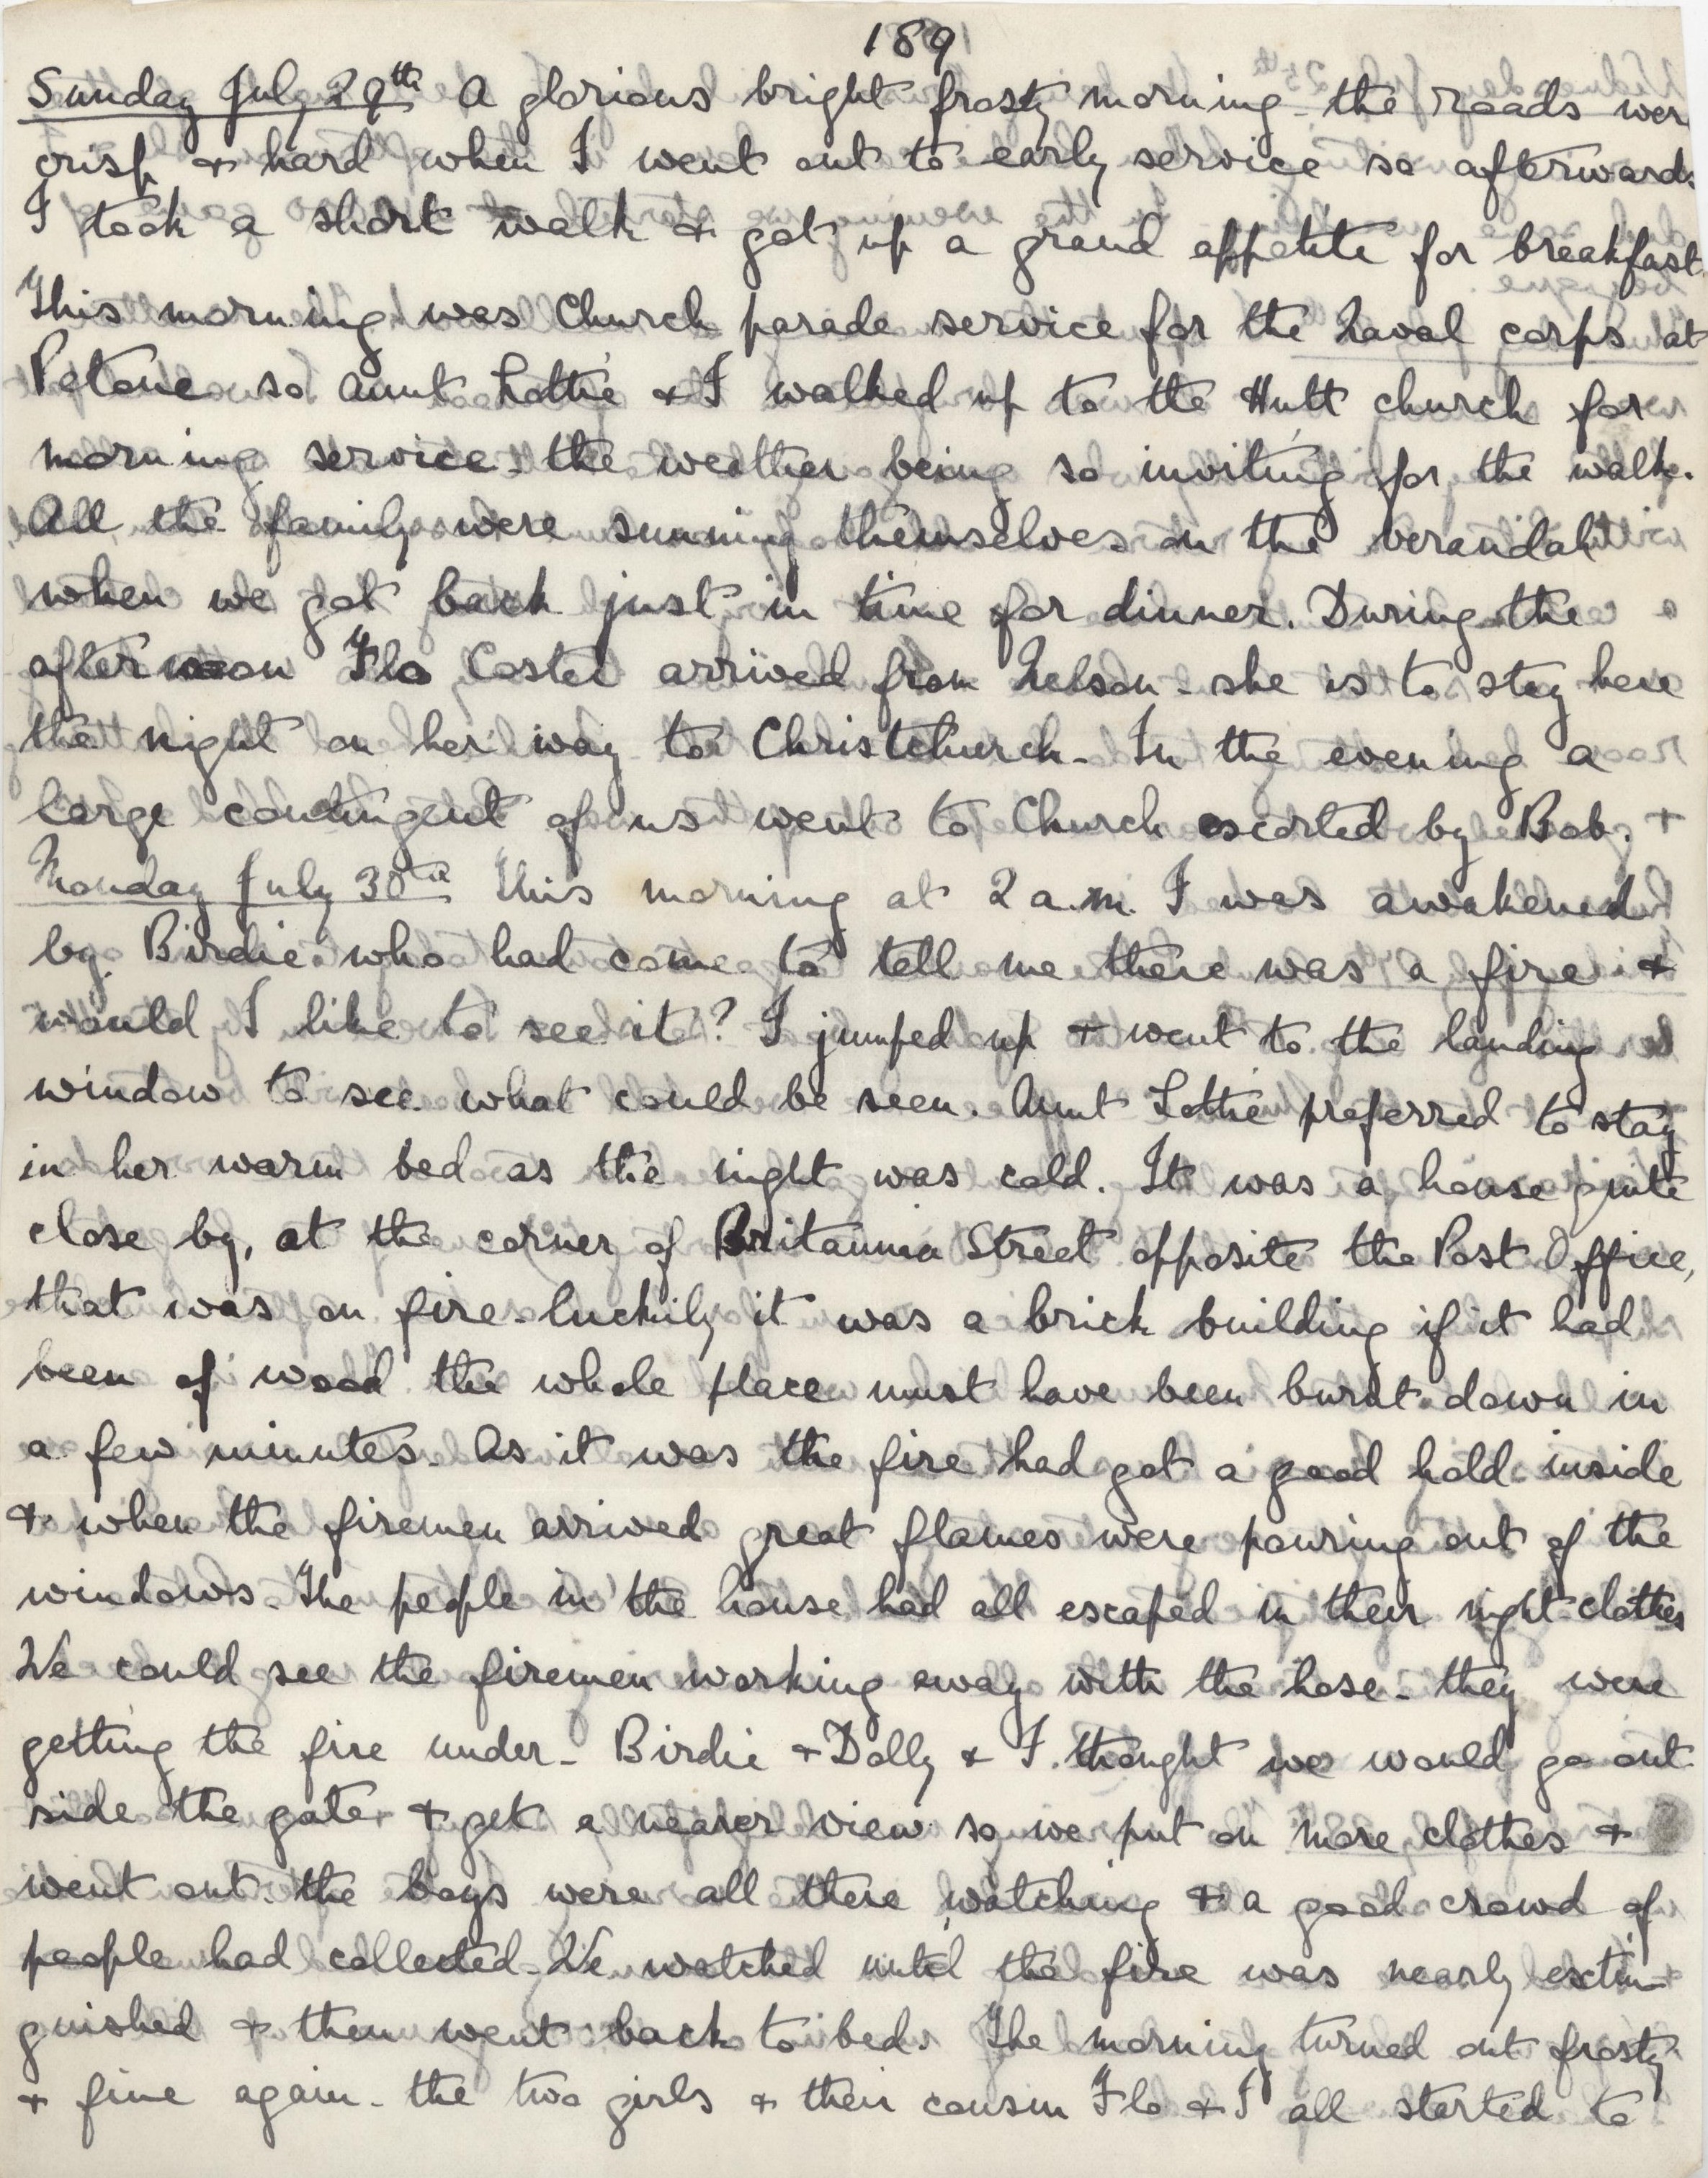 189
Sunday July 29th A glorious bright frosty morning - the roads wer
crisp & hard when I went out to early service so afterwards
I took a short walk & got up a grand appetite for breakfast.
This morning was Church parade service for the Naval corps at
Petone so Aunt Lottie & I walked up to the Hutt church for
morning service - the weather being so inviting for the walk.
All the family were sunning themselves on the verandah
when we got back just in time for dinner. During the
afternoon Flo Coster arrived from Nelson - she is to stay here
the night on her way to Christchurch - In the evening a
large contingent of us went to Church escorted by Bob. +
Monday July 30th This morning at 2 a.m. I was awakened
by Birdie who had come to tell me there was a fire &
would I like to see it? I jumped up & went to the landing
window to see what could be seen. Aunt Lottie preferred to stay
in her warm bed as the night was cold. It was a house quite
close by, at the corner of Britannia Street opposite the Post Office,
that was on fire - luckily it was a brick building if it had
been of wood the whole place must have been burnt down in
a few minutes. As it was the fire had got a good hold inside
& when the firemen arrived great flames were pouring out of the
windows. The people in the house had all escaped in their night-clothes
We could see the firemen working away with the hose - they were
getting the fire under - Birdie & Dolly & I thought we would go out
side the gate & get a nearer view so we put on more clothes &
went out - the boys were all there watching & a good crowd of
people had collected - We watched until the fire was nearly extin-
guished & then went back to bed. The morning turned out frosty
& fine again - the two girls & their cousin Flo & I all started to